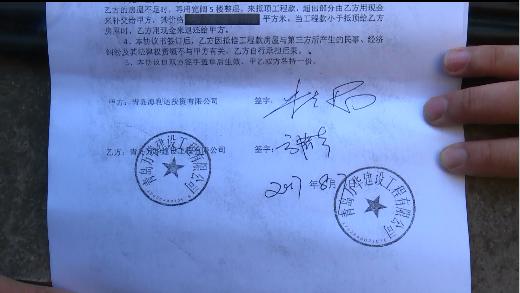 乙方的房屋不足时，再用宽阔5楼整层，来抵顶工程款，超出部分由乙方用现金
来补交给甲方，其价格 平方米，当工程款小于抵顶给乙方
房屋时，乙方用现金来退还给甲方。
4、本协议书签订后，乙方因抵偿工程款房屋与第三方所产生的民事、经济
纠纷及其法律权责概不与甲方有关，乙方自行承担后果。
5、本协议自双方签字盖章后生效，甲乙双方各持一份。
甲方：青岛海利达投资有限公司 签字：
乙方：青岛万华建设工程有限公司 签字：
2017 年 8 月 7
青岛万华建设工程有限公司
青岛万华建设工程有限公司